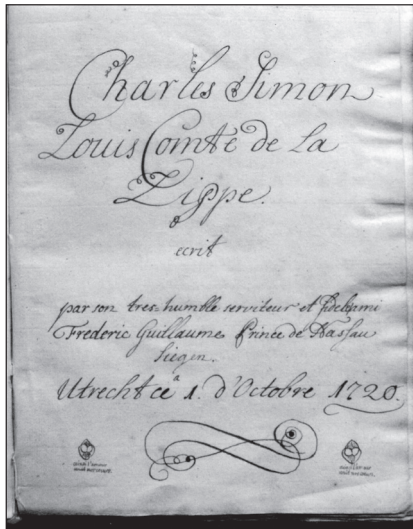 Charles Simon
Louis Comte de La
Lippe.
ecrit
par son tres humble serviteur et fidel ami
Frederic Guillaume Prince de Nassau
Siegen.
Utrecht ce 1. d'Octobre 1720.